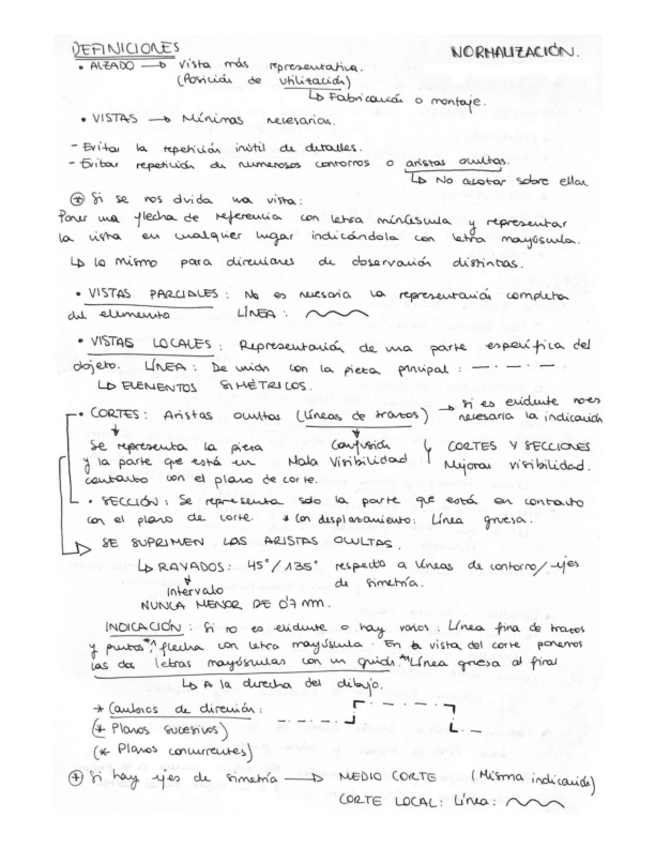 DEFINICIONES NORMALIZACIÓN.
• ALZADO → Vista más representativa.
(Posición de utilización)
↳ Fabricación o montaje.
• VISTAS → Mínimas necesarias.
- Evitar la repetición inútil de detalles.
- Evitar repetición de numerosos contornos o aristas ocultas.
↳ No acotar sobre ellas.
⊛ Si se nos olvida una vista:
Poner una flecha de referencia con letra minúscula y representar
la vista en cualquier lugar indicándola con letra mayúscula.
↳ lo mismo para direcciones de observación distintas.
• VISTAS PARCIALES: No es necesaria la representación completa
del elemento LÍNEA:
• VISTAS LOCALES: Representación de una parte específica del
objeto. LÍNEA: De unión con la pieza principal: — · — · —
↳ ELEMENTOS SIMÉTRICOS.
• CORTES: Aristas ocultas (Líneas de trazos) → Si es evidente no es
necesaria la indicación
Se representa la pieza Confusión CORTES Y SECCIONES
y la parte que está en Mala Visibilidad Mejorar visibilidad.
contacto con el plano de corte.
• SECCIÓN: Se representa solo la parte que está en contacto
con el plano de corte. * Con desplazamiento: Línea gruesa.
SE SUPRIMEN LAS ARISTAS OCULTAS.
↳ RAYADOS: 45°/135° respecto a líneas de contorno/ejes
de simetría.
Intervalo
NUNCA MENOR DE 0'7 mm.
INDICACIÓN: Si no es evidente o hay varios: Línea fina de trazos
y puntos*, flecha con letra mayúscula. En la vista del corte ponemos
las dos letras mayúsculas con un guión. *Línea gruesa al final
↳ A la derecha del dibujo.
* Cambios de dirección:
(* Planos sucesivos)
(* Planos concurrentes)
⊛ Si hay ejes de simetría → MEDIO CORTE (Misma indicación)
CORTE LOCAL: Línea: